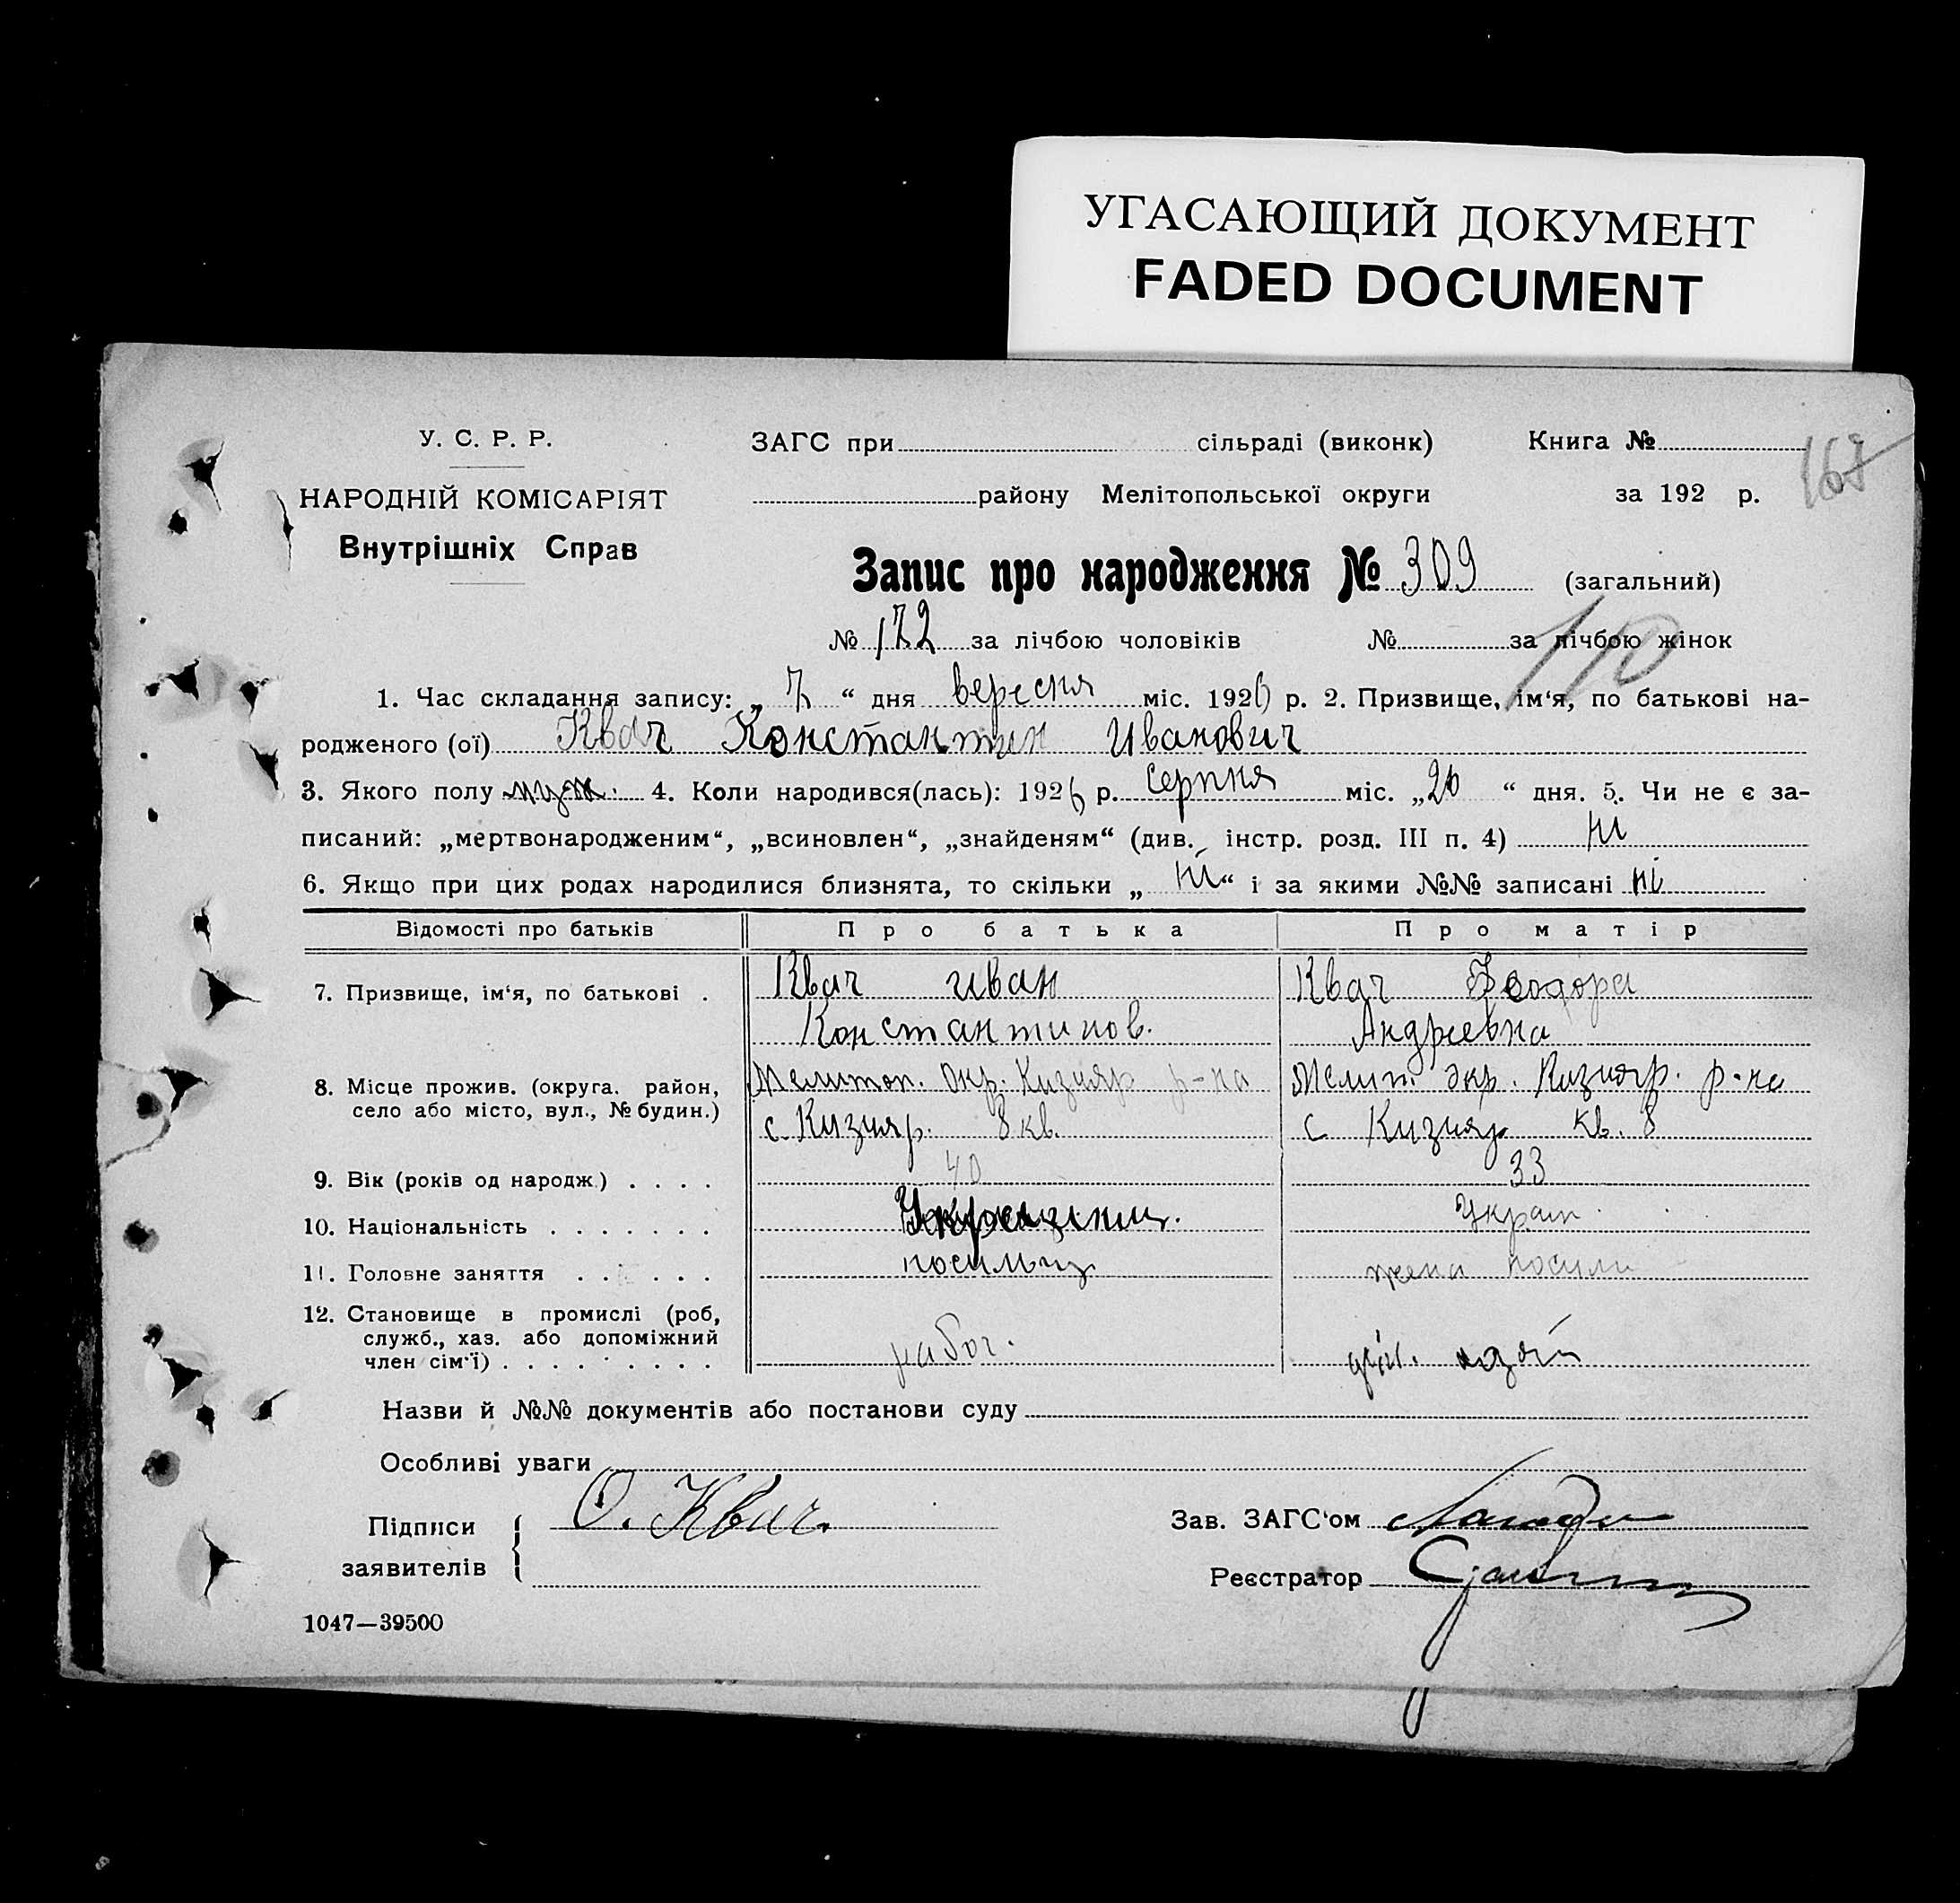 УГАСАЮЩИЙ ДОКУМЕНТ
FADED DOCUMENT
У. С. Р. Р.
НАРОДНІЙ КОМІСАРІЯТ
Внутрішніх Справ
ЗАГС при сільраді (виконк) Книга №
району Мелітопольської округи за 192 р.
Запис про народження № 309 (загальний)
№ 172 за лічбою чоловіків № за лічбою жінок
110
1. Час складання запису: „ 7 “ дня вересня міс. 1926 р. 2. Призвище, ім‘я, по батькові на-
родженого (ої) Квач Константин Иванович
3. Якого полу муж. 4. Коли народився(лась): 1926 р. серпня міс. „26 “ дня. 5. Чи не є за-
писаний: „мертвонародженим“, „всиновлен“, „знайденям“ (див. інстр. розд. III п. 4) ні
6. Якщо при цих родах народилися близнята, то скільки „ ні “ і за якими №№ записані ні
Відомості про батьків Про батька Про матір
7. Призвище, ім‘я, по батькові . Квач Иван Квач Феодора
Константинов. Андреевна
8. Місце прожив. (округа. район, Мелитоп. Окр. Кизияр р-на Мелит. окр. Кизияр. р-на
село або місто, вул., № будин.) с. Кизияр. 8 кв. с Кизияр кв. 8
9. Вік (років од народж.) . . . . 40 33
10. Національність . . . . . . . Украинц. Украин.
11. Головне заняття . . . . . носильщ жена носил
12. Становище в промислі (роб,
служб., хаз. або допоміжний
член сім‘ї) . . . . . . . . . рабоч.
Назви й №№ документів або постанови суду
Особливі уваги
Підписи
заявителів
О. Квач.
Зав. ЗАГС‘ом
Реєстратор
1047—39500